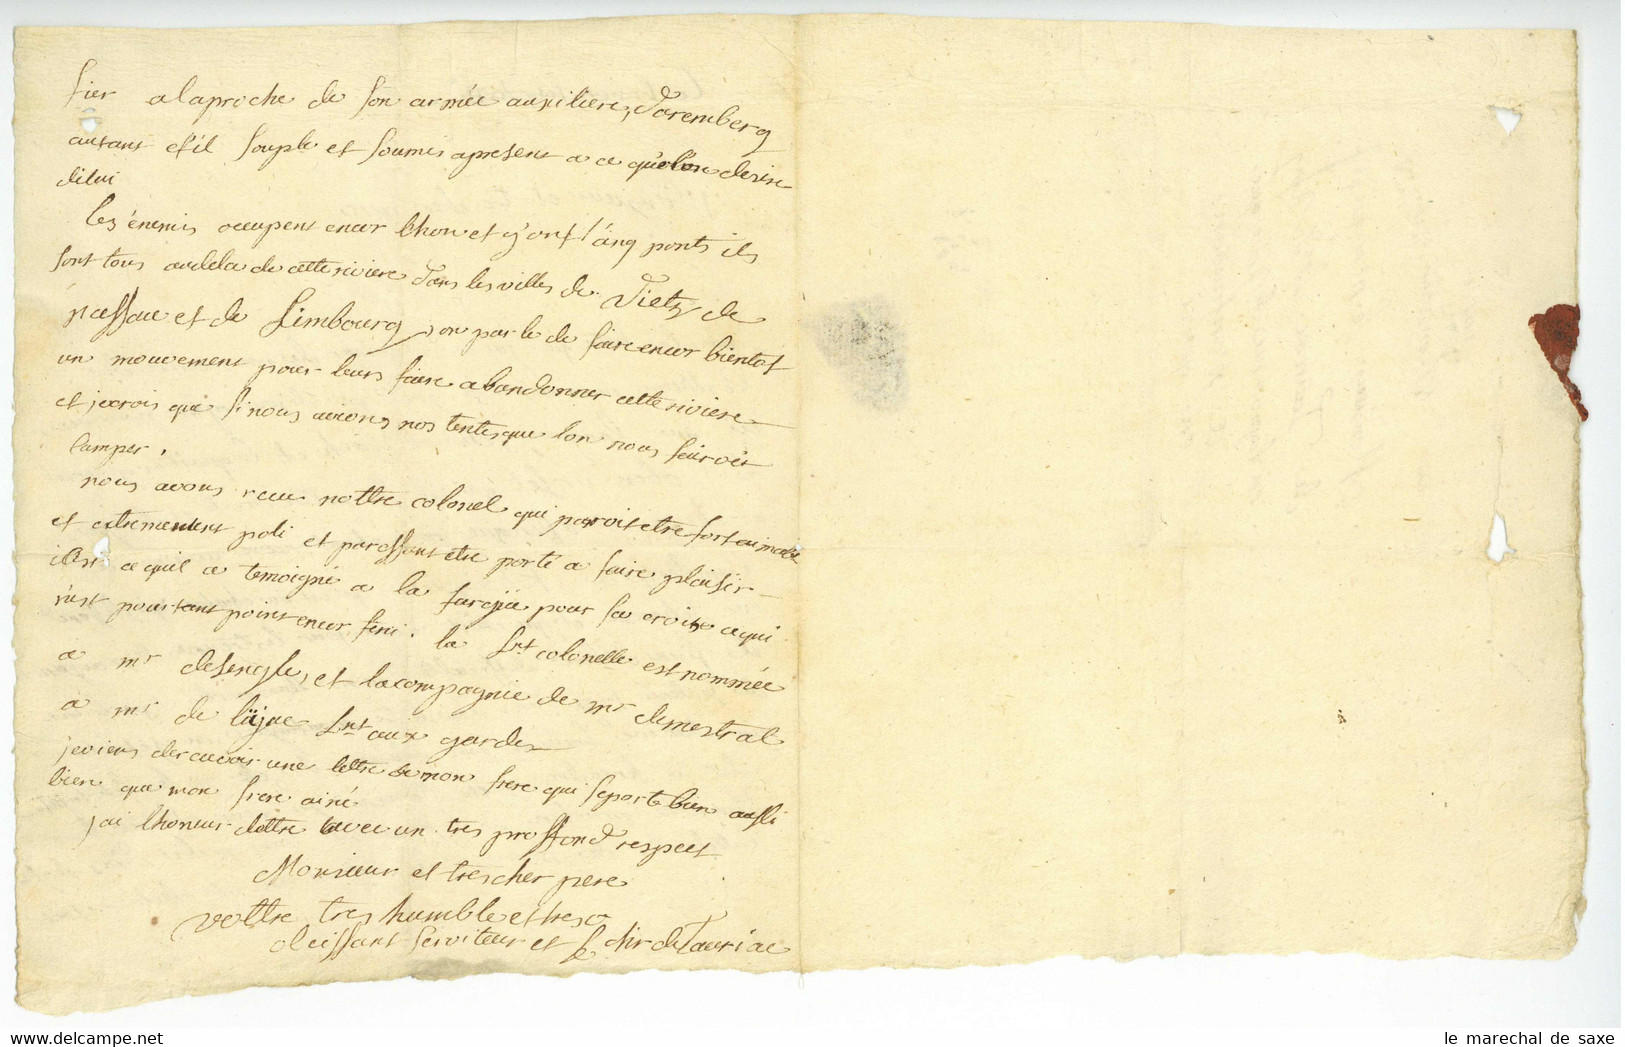 fier alaproche de son armée auxiliere, Daremberg
autant est il souple et soumis apresent a ce quelon desire
delui
les énemis occupent encor lhon et y ont cinq ponts ils
sont tous audela de cette riviere dans les villes de Dietz de
nassau et de Limbourg, on parle de faire encor bientot
un mouvement pour leurs faire abandonner cette riviere
et jecrois que si nous avions nos tentes que lon nous fairoit
camper.
nous avons receu nottre colonel qui paroit etre fort aimable
et extremement poli et paroissant etre porté a faire plaisir
cest ce quil a temoigné a la fargue pour sa croix ce qui
nest pourtant point encor fini. la Lnt colonelle est nommée
a mr desengle, et lacompagnie de mr demestral
a mr de Lnt aux gardes
jeviens derecevoir une lettre de mon frere qui seporte bien aussi
bien que mon frere ainé
jai lhoneur dettre avec un tres proffond respect
Monsieur et trescher pere
vottre tres humble et tres o
beissant serviteur et f. chr de Tauriac
le marechal de saxe